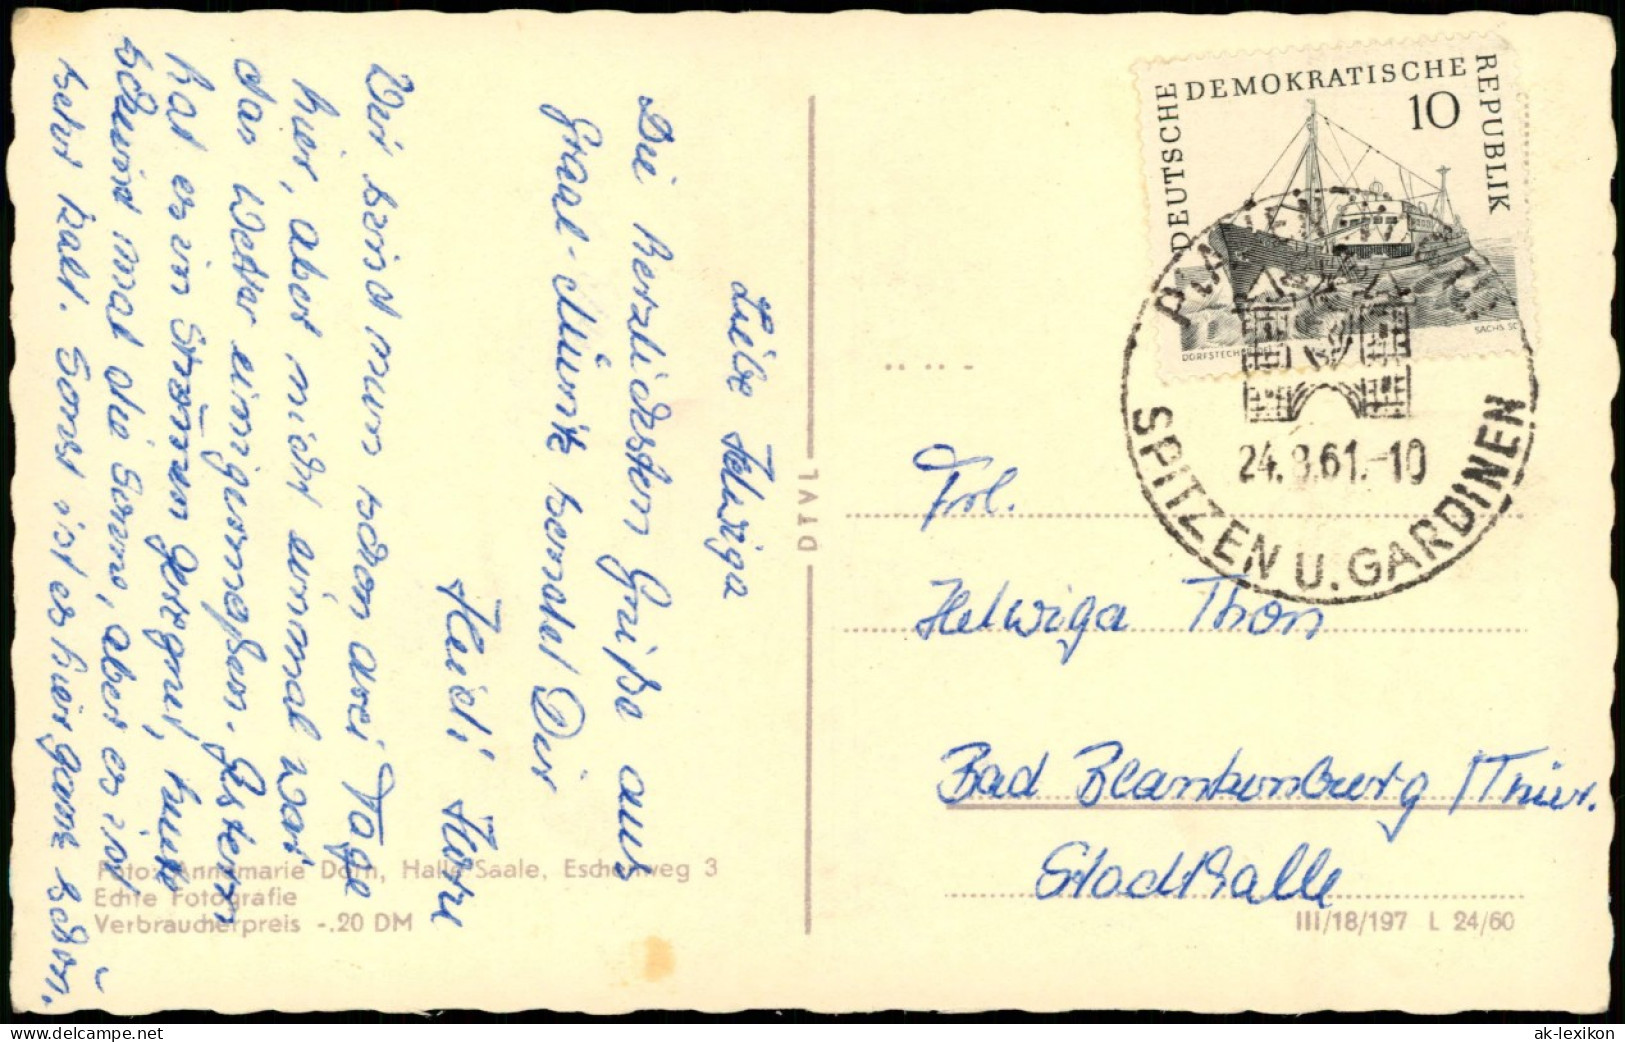 Liebe Helwiga
Die herzlichsten Grüße aus
Graal-Müritz sendet Dir
Heidi
Wir sind nun schon drei Tage
hier, aber nicht einmal war
das Wetter einigermaßen. Gestern
hat es in Strömen geregnet, heute
scheint mal die Sonne, aber es ist
sehr kalt. Sonst ist es hier ganz schön.
Foto: Annemarie Dorn, Halle-Saale, Eschenweg 3
Echte Fotografie
Verbraucherpreis -.20 DM
DEUTSCHE DEMOKRATISCHE REPUBLIK
10
DORFSTECHER DEL
SACHS. SC
PLAUEN
24.8.61.-10
SPITZEN U. GARDINEN
Frl.
Helwiga Thon
Bad Blankenburg /Thür.
Stadthalle
III/18/197 L 24/60
www.delcampe.net
ak-lexikon